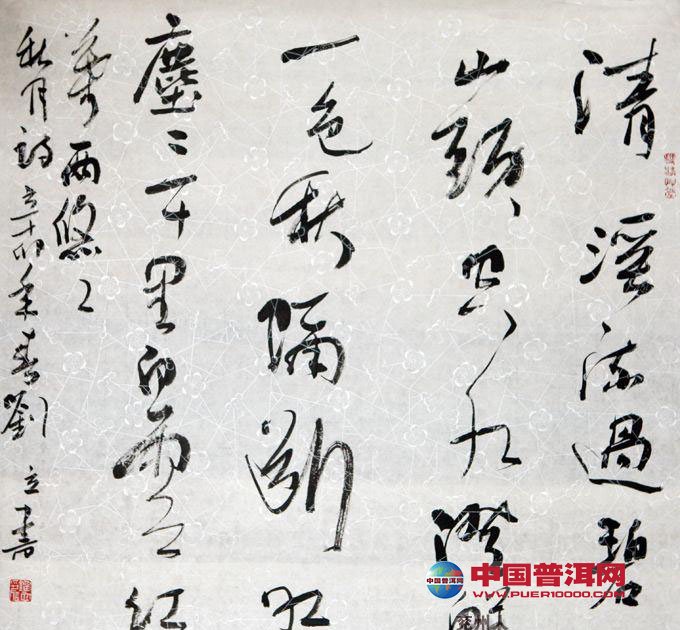 清溪流過碧
山頭空水澄鮮
一色秋隔斷紅
塵三十里白雲紅
葉兩悠々
秋月詩辛卯年春劉立書
中国普洱网
WWW.PUER10000.COM